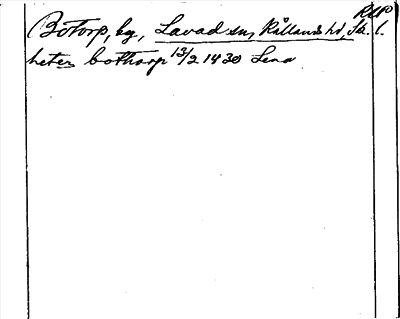 RLP
Botorp, bg., Lavad sn, Kållands hd, Sk. l.
heter bothorp 13/2 1430 Lena